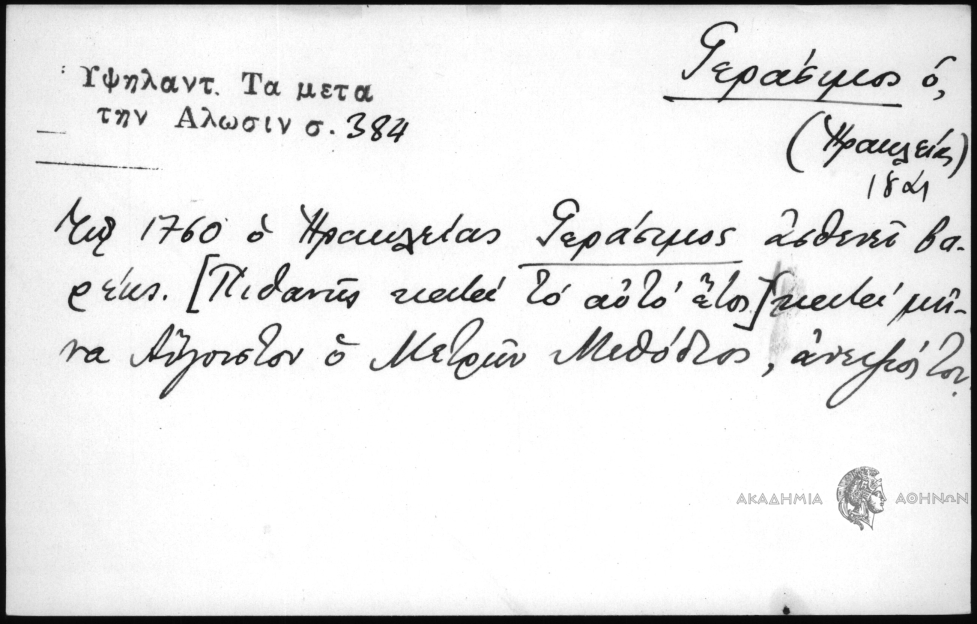 Υψηλαντ. Τα μετα
την Αλωσιν σ. 384
Γεράσιμος ὁ,
(Ἡρακλείας)
Τῷ 1760 ὁ Ἡρακλείας Γεράσιμος ἀσθενεῖ βα-
ρέως. [Πιθανῶς κατά τό αὐτό ἔτος] κατά μῆ-
να Αὔγουστον ὁ Μετρῶν Μεθόδιος, ἀνεψιός του.
ΑΚΑΔΗΜΙΑ ΑΘΗΝΩΝ